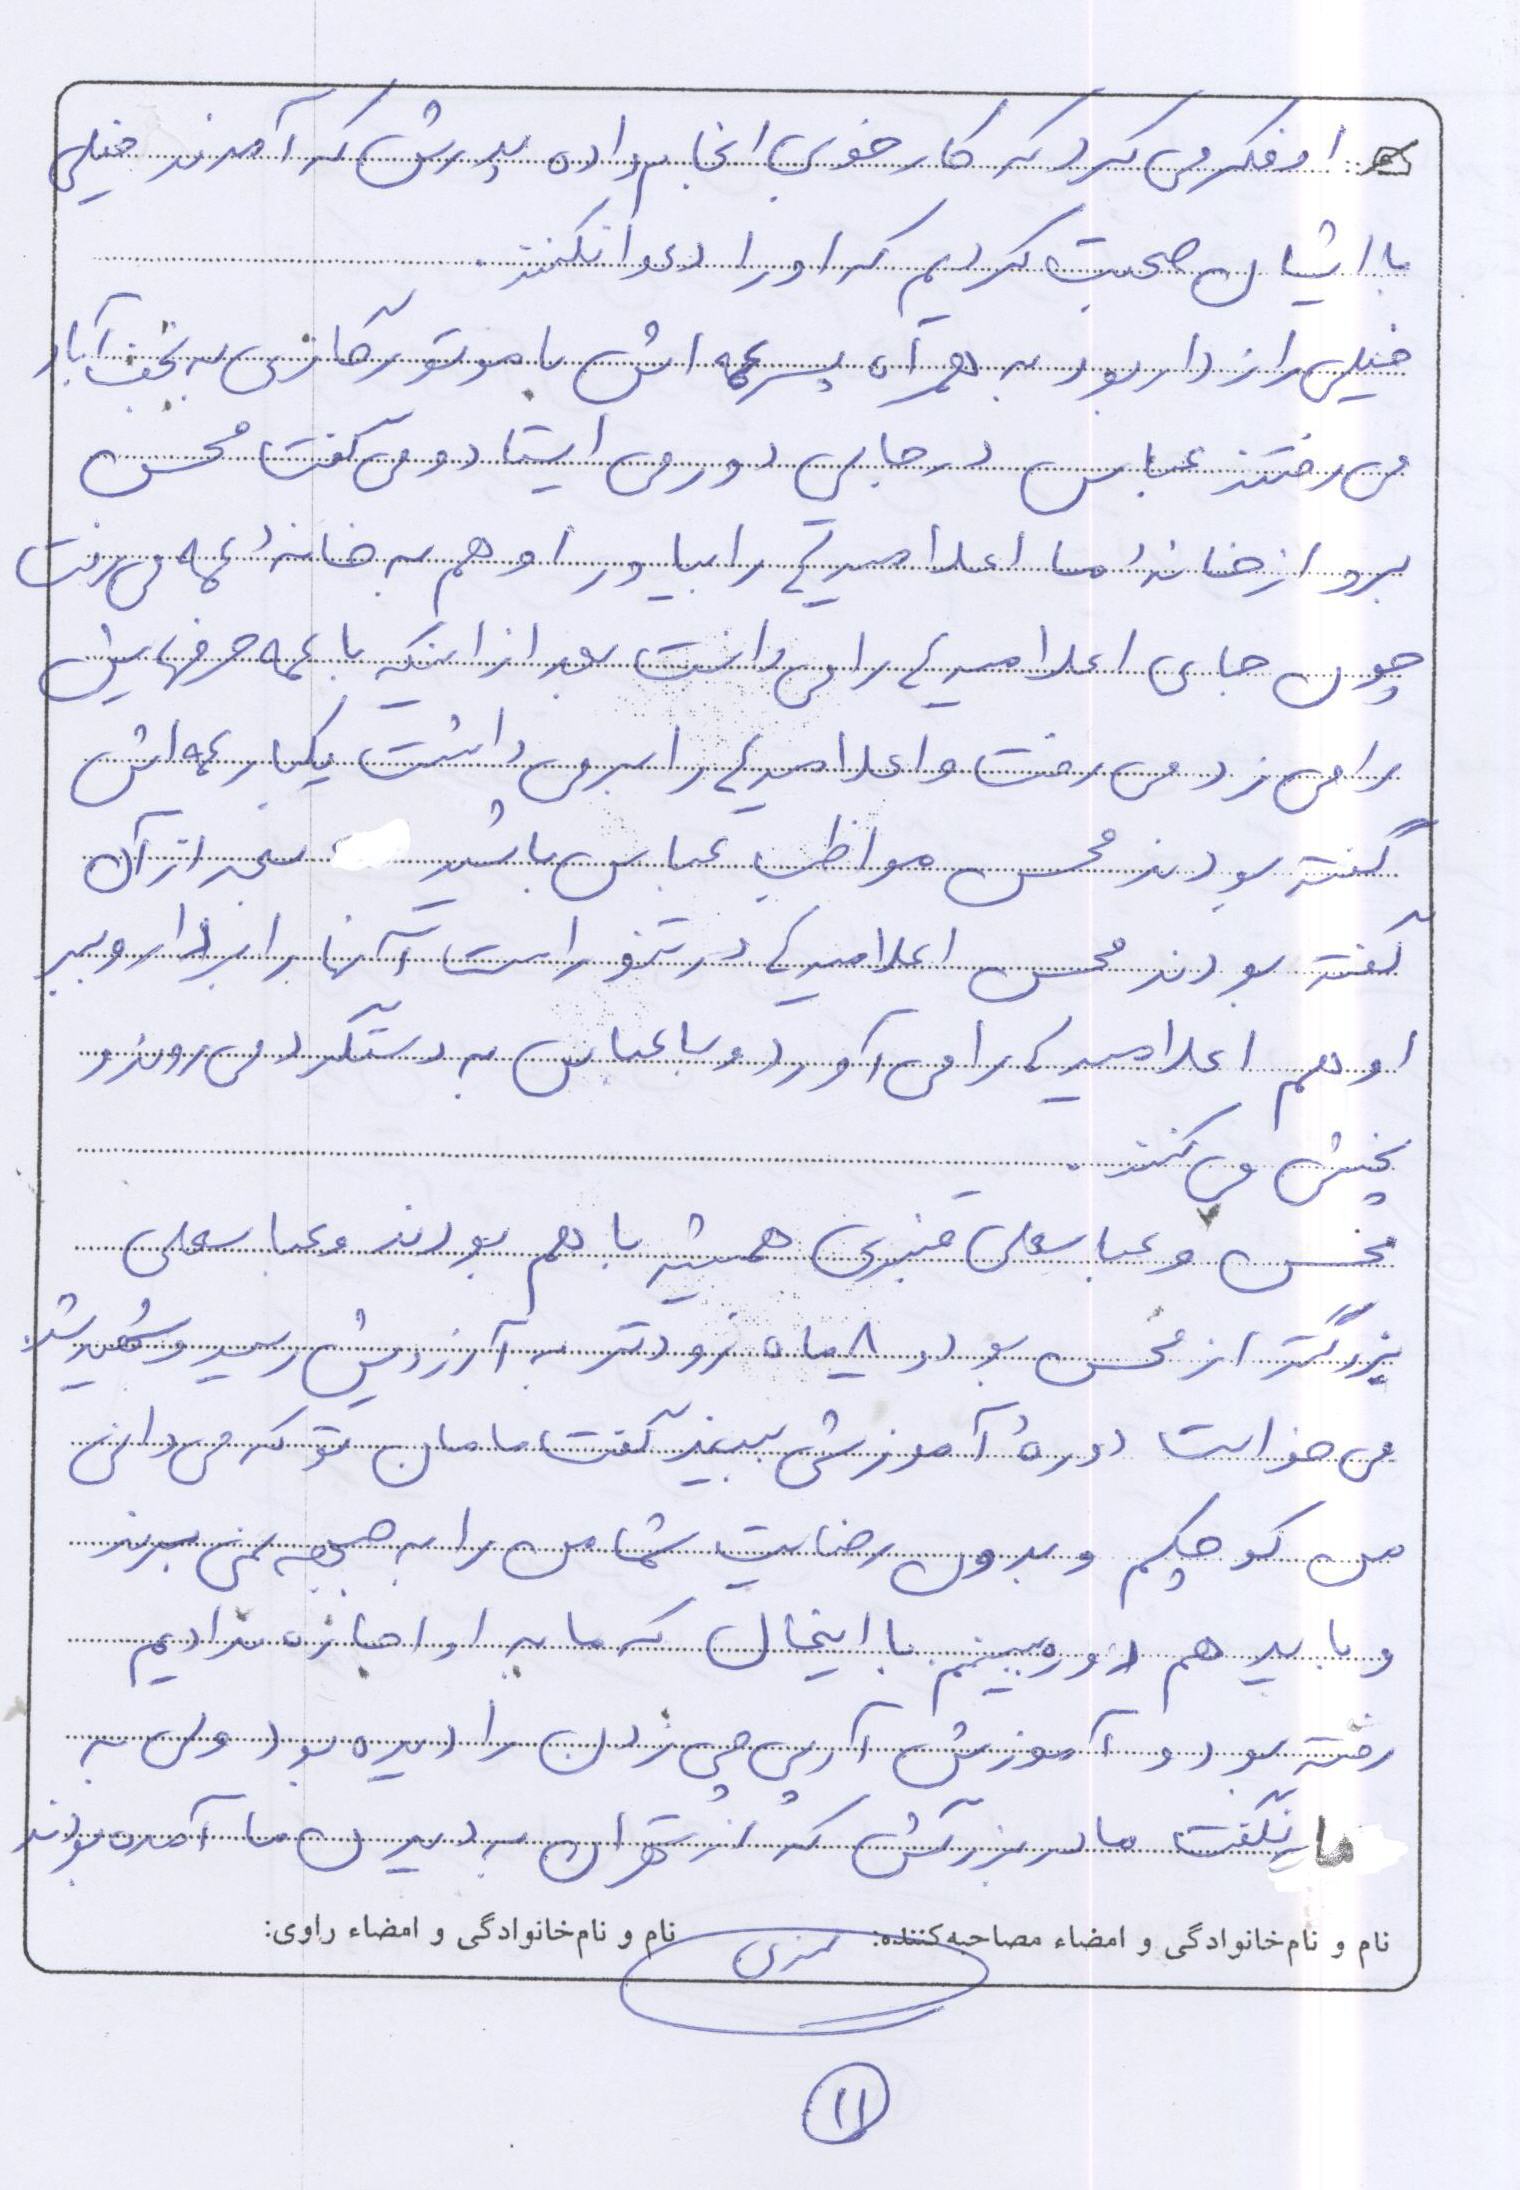 او فکر می کرد که کار خوبی انجام داده پدرش که آمدند خیلی
با ایشان صحبت کردیم که او را دعوا نکنند.
خیلی رازدار بود به همراه پسرعمه اش با موتور گازی به نجف آباد
می رفتند عباس در جایی دور می ایستاد و می گفت محسن
برو از خانهٔ ما اعلامیه ها را بیاور او هم به خانهٔ عمه می رفت
چون جای اعلامیه ها را می دانست بعد از اینکه با عمه حرفهایش
را می زد می رفت و اعلامیه ها را برمی داشت یکبار عمه اش
گفته بودند محسن مواظب عباس باشید بعد از آن
گفته بودند محسن اعلامیه ها در تنور است آنها را بردار و ببر
او هم اعلامیه ها را می آورد و با عباس به دستگرد می روند و
پخش می کنند.
محسن و عباسعلی قنبری همیشه با هم بودند و عباسعلی
بزرگتر از محسن بود و ۸ ماه زودتر به آرزویش رسید و شهید شد.
می خواست دورهٔ آموزشی ببیند گفت مامان تو که می دانی
من کوچکم و بدون رضایت شما من را به جبهه نمی برند
و باید هم دوره ببینم. با اینحال که ما به او اجازه ندادیم
رفته بود و آموزش آرپی جی زدن را دیده بود ولی به
ما نگفت مادربزرگش که از تهران به دیدن ما آمده بودند
نام و نام‌خانوادگی و امضاء مصاحبه‌کننده: نام و نام‌خانوادگی و امضاء راوی:
۱۱